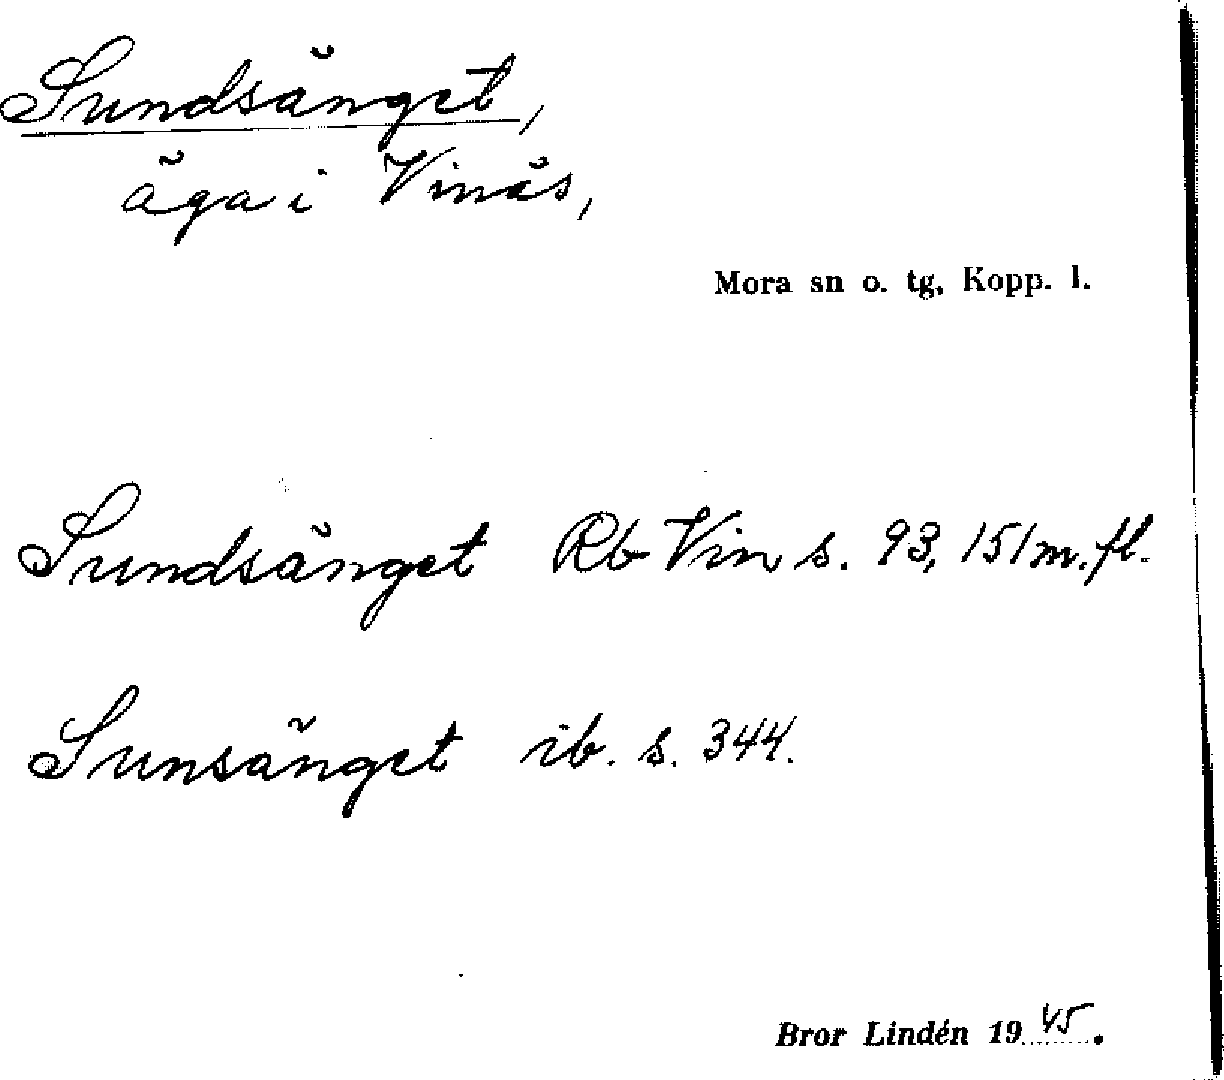 Sundsänget,
äga i Vinäs,
Mora sn o. tg, Kopp. l.
Sundsänget Rb Vin s. 93, 151 m. fl.
Sunsänget ib. s. 344.
Bror Lindén 1945.